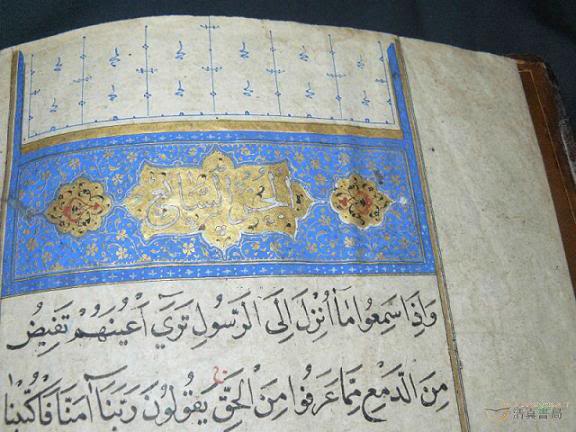 الجزء السابع
وَاِذَا سَمِعُوا مَٓا اُنْزِلَ اِلَى الرَّسُولِ تَرٰٓى اَعْيُنَهُمْ تَفِيضُ
مِنَ الدَّمْعِ مِمَّا عَرَفُوا مِنَ الْحَقِّ يَقُولُونَ رَبَّنَا اٰمَنَّا فَاكْتُبْنَا
清真書局